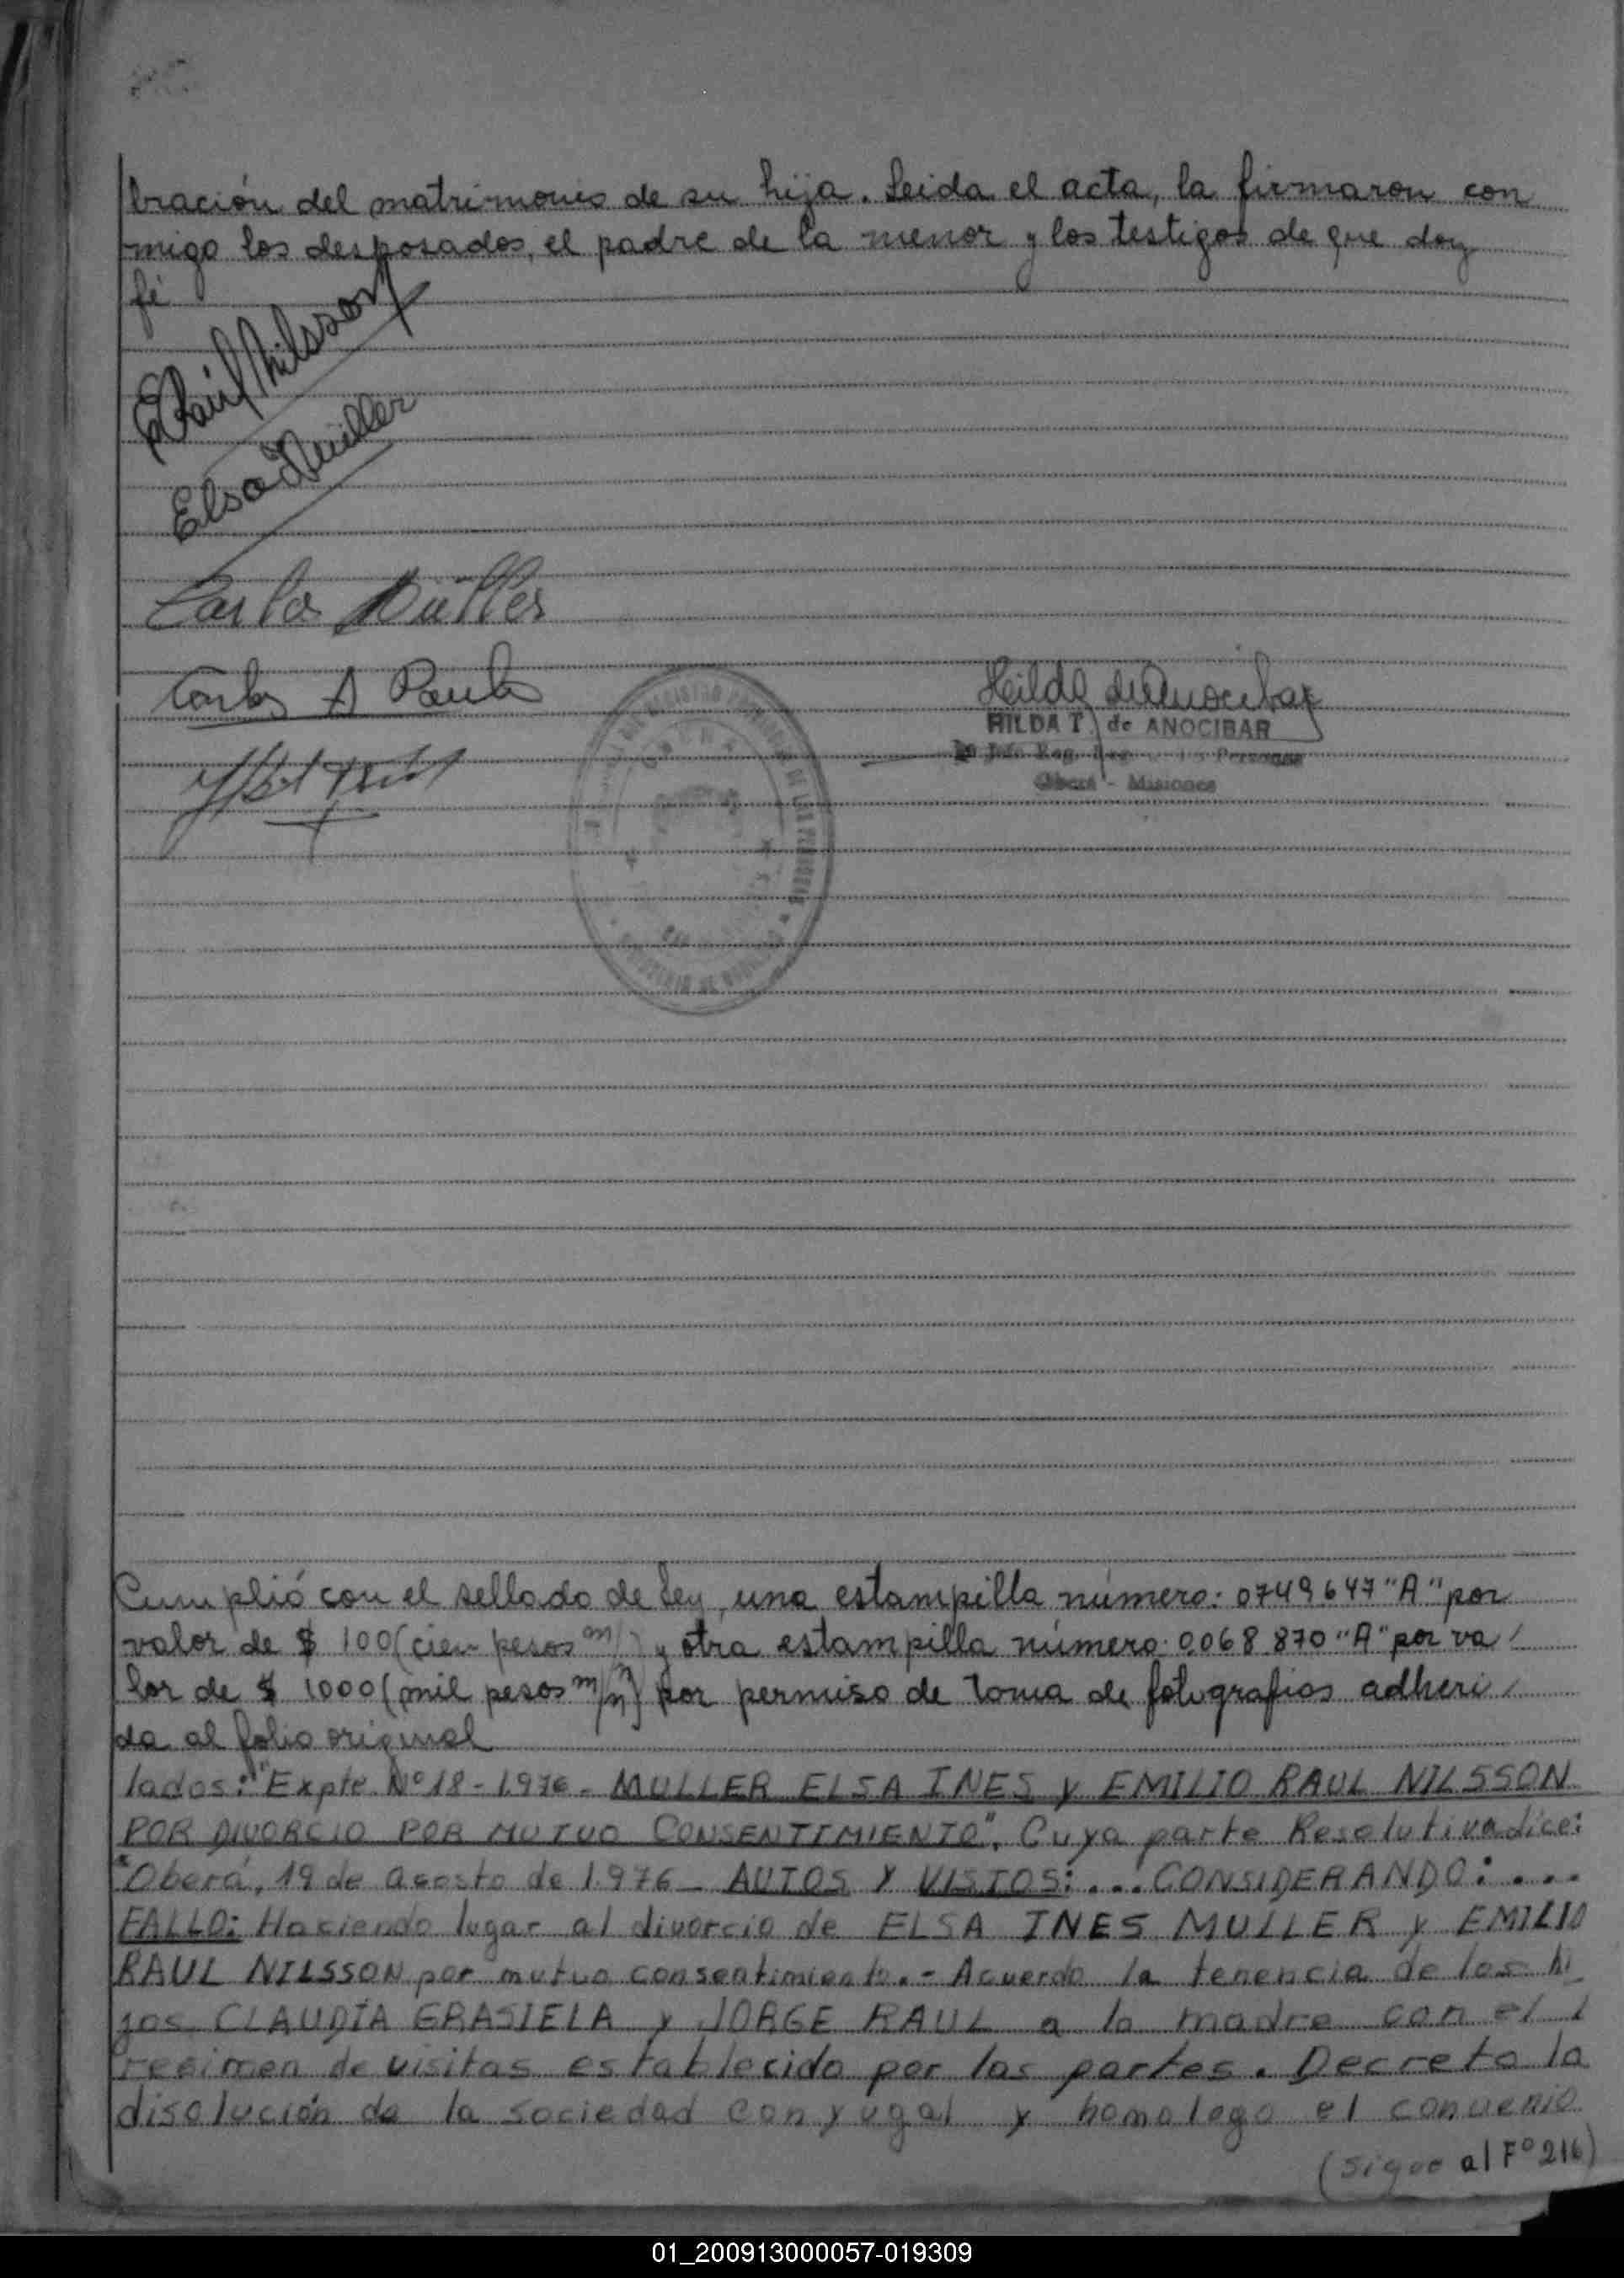 bración del matrimonio de su hija. Leida el acta, la firmaron con
migo los desposados, el padre de la menor y los testigos de que doy
fé
E Raúl Nilsson
Elsa Müller
Carlos Müller
Carlos A
Hilda de Anocibar
HILDA T. de ANOCIBAR
Jefe Reg. Personas
Oberá - Misiones
Cumplió con el sellado de Ley, una estampilla número: 0749647 "A" por
valor de $ 100 (cien pesos m/ ) y otra estampilla número: 0068870 "A" por va/
lor de $ 1000 (mil pesos m/n) por permiso de toma de fotografias adheri/
da al folio original
lados: "Expte. Nº 18-1.976- MULLER ELSA INES y EMILIO RAUL NILSSON
POR DIVORCIO POR MUTUO CONSENTIMIENTO". Cuya parte Resolutiva dice:
"Oberá, 19 de agosto de 1.976- AUTOS Y VISTOS:... CONSIDERANDO:....
FALLO: Haciendo lugar al divorcio de ELSA INES MULLER y EMILIO
RAUL NILSSON por mutuo consentimiento.- Acuerdo la tenencia de los hi
jos CLAUDIA GRASIELA y JORGE RAUL a la madre con el /
regimen de visitas establecido por las partes. Decreto la
disolución de la sociedad conyugal y homologo el convenio
(sigue al Fº 216)
01_200913000057-019309